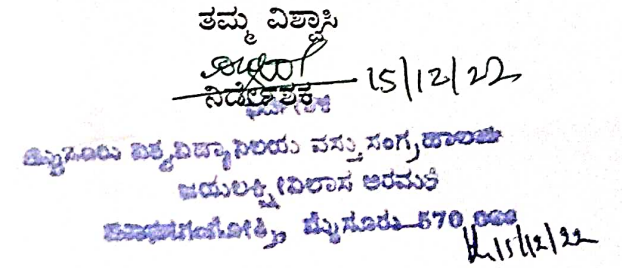 ತಮ್ಮ ವಿಶ್ವಾಸಿ
ನಿರ್ದೇಶಕ 15/12/22
ನಿರ್ದೇಶಕ
ಮೈಸೂರು ವಿಶ್ವವಿದ್ಯಾನಿಲಯ ವಸ್ತು ಸಂಗ್ರಹಾಲಯ
ಜಯಲಕ್ಷ್ಮೀವಿಲಾಸ ಅರಮನೆ
ಮಾನಸಗಂಗೋತ್ರಿ, ಮೈಸೂರು-570 006
15/12/22